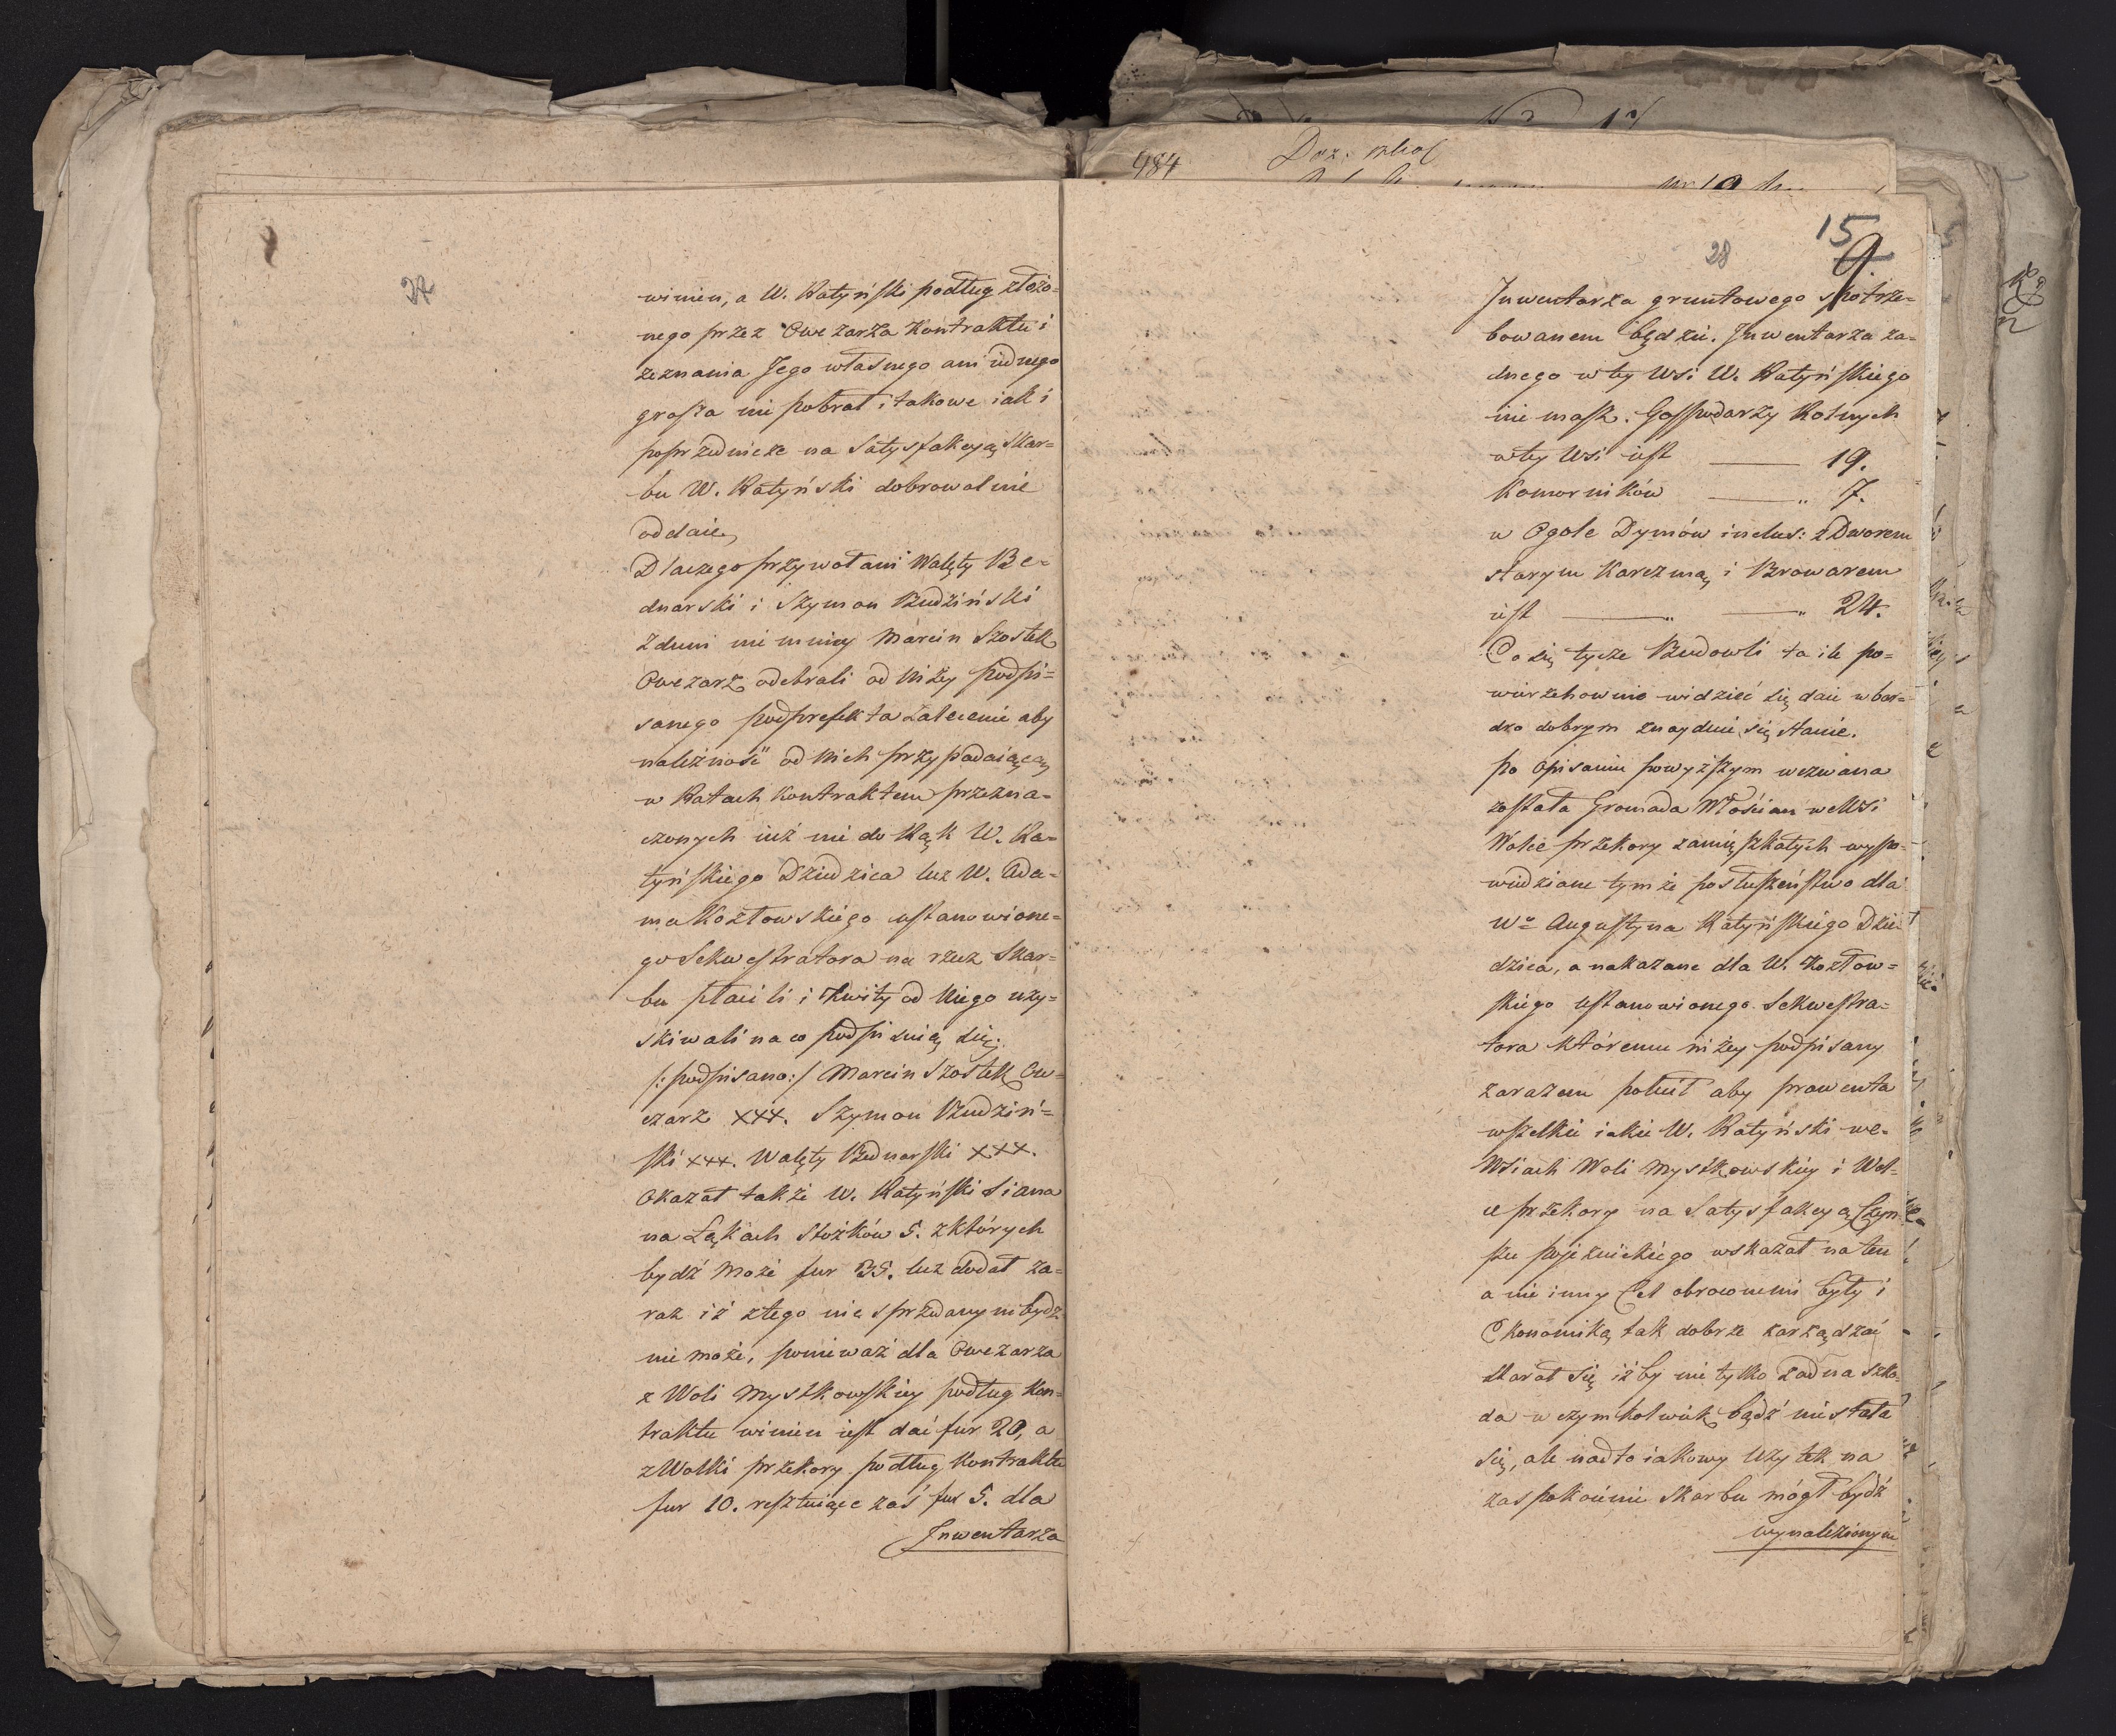 27
winien, a W. Ratyński podług złożo=
nego przez Owczarza Kontraktu i
zeznania Jego własnego ani iednego
grosza nie pobrał i takowe iak i
poprzednicze na Satysfakcyą Skar=
bu W. Ratyński dobrowolnie
oddaie,
Dlaczego przywołani Walęty Be=
dnarski i Szymon Budziński
Zduni nie mniey Marcin Szostek
Owczarz odebrali od Niżey podpi=
sanego podprefekta zalecenie aby
należność od Nich przypadaiącą
w Ratach Kontraktem przezna=
czonych iuż nie do Rąk W. Ra=
tyńskiego Dziedzica lecz W. Ada=
ma Kozłowskiego ustanowione=
go Sekwestratora na rzecz Skar=
bu płacili i Kwity od Niego uzy=
skiwali na co podpisuią się.
/: podpisano:/ Marcin Szostek Ow=
czarz xxx. Szymon Budziń=
ski xxx. Walęty Bednarski xxx.
Okazał także W. Ratyński Siana
na Łąkach Stożków 5. z których
bydź może fur 35. lecz dodał za=
raz iż z tego nic sprzedanym bydz
nie może, ponieważ dla Owczarza
z Woli Mystkowskiey podług Kon=
traktu winien iest dać fur 20, a
z Wolki przekory podług Kontraktu
fur 10. resztuiące zaś fur 5. dla
Inwentarza
484
15
28
9.
Inwentarza gruntowego spotrze=
bowanem będzie. Inwentarza ża=
dnego w tey Wsi W. Ratyńskiego
nie masz. Gospodarzy Rolnych
w tey Wsi iest — 19.
Komorników — " 7.
w Ogole Dymów inclus: z Dworem
starym Karczmą i Browarem
iest — " — " 24.
Co się tycze Budowli ta ile po=
wierzchownie widzieć się daie w bar=
dzo dobrym znayduie się stanie.
po Opisaniu powyższym wezwana
została Gromada Włościan we Wsi
Wolce przekory zamieszkałych wypo=
wiedziane tymże posłuszeństwo dla
Wo Augustyna Ratyńskiego Dzie=
dzica, a nakazane dla W. Kozłow=
skiego ustanowionego Sekwestra=
tora któremu niżey podpisany
zarazem polecił aby prowenta
wszelkie iakie W. Ratyński we=
Wsiach Woli Mystkowskiey i Wol=
ce przekory na Satysfakcyą Czyn=
szu pojezuickiego wskazał na ten
a nie inny Cel obrócnemi były i
Ekonomiką tak dobrze zarządzać
starał się iżby nie tylko żadna szko=
da w czymkolwiek bądź nie stała
się, ale nadto iakowy Użytek na
zaspokoienie Skarbu mógł bydź
wynalezionym